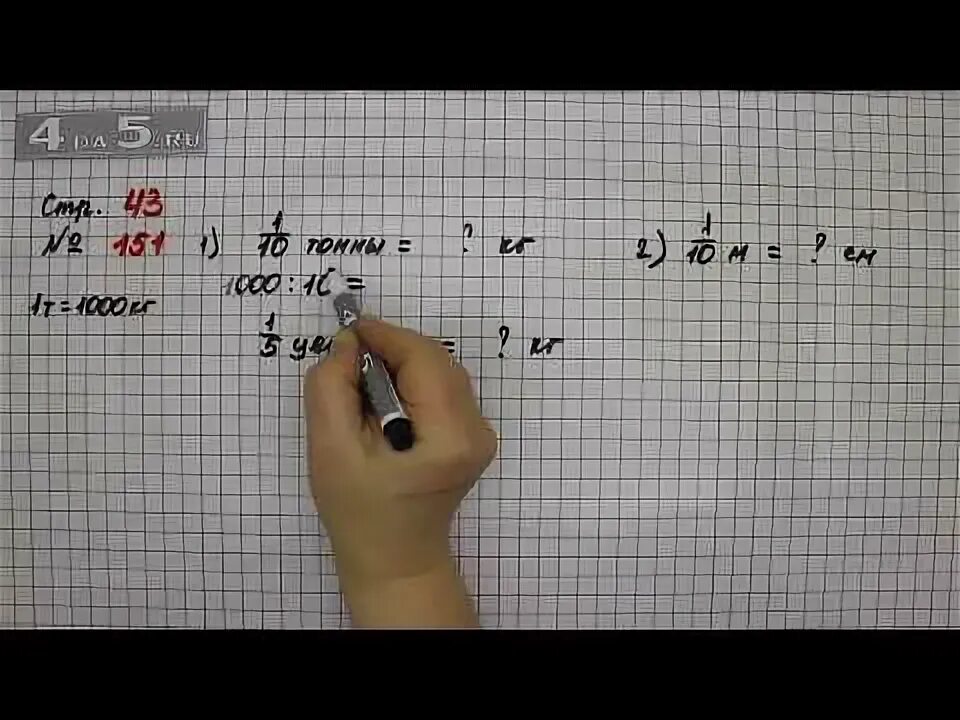 4 на 5.RU
Стр. 43
№ 151 1) 1/10 тонны = ? кг 2) 1/10 м = ? см
1000 : 10 =
1т = 1000 кг
1/5 = ? кг